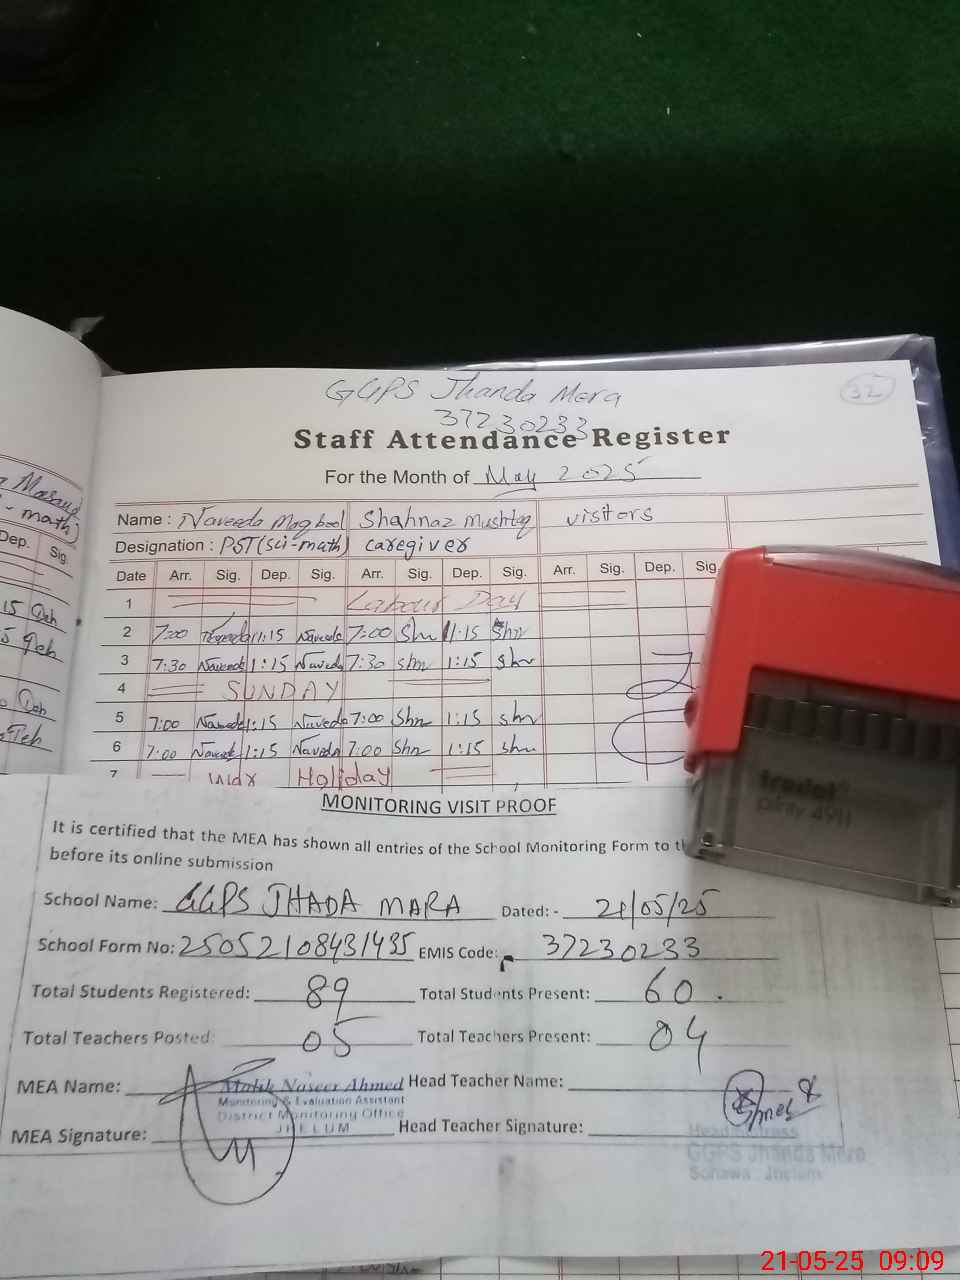 GGPS Jhanda Mera
32
37230233
Staff Attendance Register
For the Month of May 2025
Name : Naveeda Maqbool Shahnaz Mushtaq visitors
Designation : PST(Sci-math) caregiver
Date Arr. Sig. Dep. Sig. Arr. Sig. Dep. Sig. Arr. Sig. Dep. Sig.
1 Labour Day
2 7:00 Naveeda 1:15 Naveeda 7:00 Shn 1:15 Shn
3 7:30 Naveeda 1:15 Naveeda 7:30 Shn 1:15 Shn
4 SUNDAY
5 7:00 Naveeda 1:15 Naveeda 7:00 Shn 1:15 Shn
6 7:00 Naveeda 1:15 Naveeda 7:00 Shn 1:15 Shn
7 Holiday
Masaud
- math)
Dep. Sig.
trodat
printy 4911
MONITORING VISIT PROOF
It is certified that the MEA has shown all entries of the School Monitoring Form to
before its online submission
School Name: GGPS JHADA MARA Dated: - 21/05/25
School Form No: 25052108431435 EMIS Code: 37230233
Total Students Registered: 89 Total Students Present: 60
Total Teachers Posted: 05 Total Teachers Present: 04
MEA Name: Malik Naseer Ahmed Head Teacher Name:
Monitoring & Evaluation Assistant
District Monitoring Office
JHELUM
MEA Signature: Head Teacher Signature:
Headmistress
GGPS Jhanda Mera
Sohawa Jhelum
21-05-25 09:09